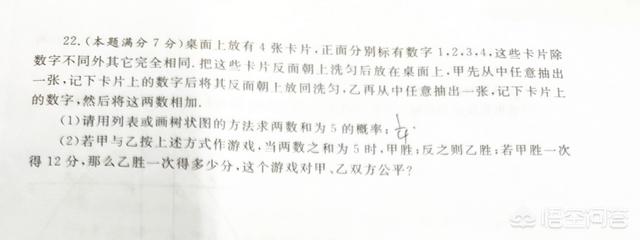 22.(本题满分7分)桌面上放有4张卡片,正面分别标有数字1,2,3,4,这些卡片除
数字不同外其它完全相同.把这些卡片反面朝上洗匀后放在桌面上,甲先从中任意抽出
一张,记下卡片上的数字后将其反面朝上放回洗匀,乙再从中任意抽出一张,记下卡片上
的数字,然后将这两数相加.
(1)请用列表或画树状图的方法求两数和为5的概率;
(2)若甲与乙按上述方式作游戏,当两数之和为5时,甲胜;反之则乙胜;若甲胜一次
得12分,那么乙胜一次得多少分,这个游戏对甲、乙双方公平?
悟空问答